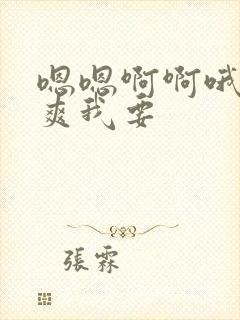 嗯嗯啊啊哦
爽我要
張霖